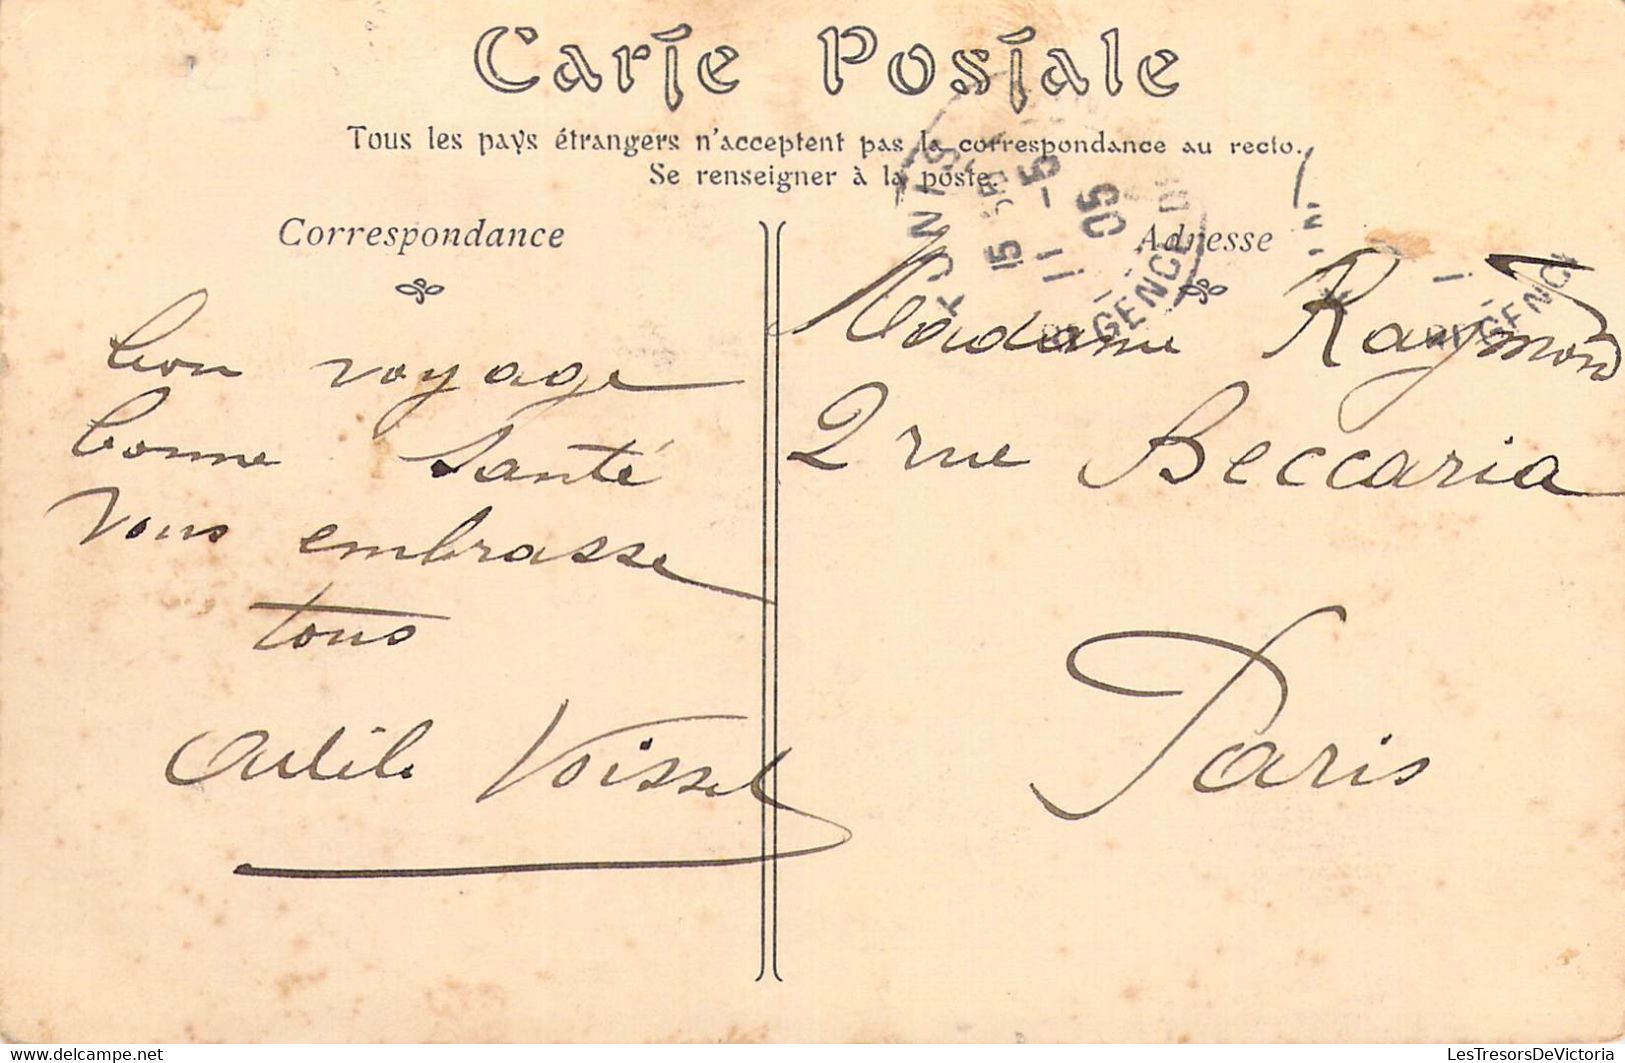 Carte Postale
Tous les pays étrangers n'acceptent pas la correspondance au recto.
Se renseigner à la poste.
Correspondance
Adresse
TUNIS
15
11 - 5
05
RÉGENCE DE
RÉGENCE
bon voyage
bonne santé
vous embrasse
tous
Voissel
Madame Raymond
2 rue Beccaria
Paris
LesTresorsDeVictoria